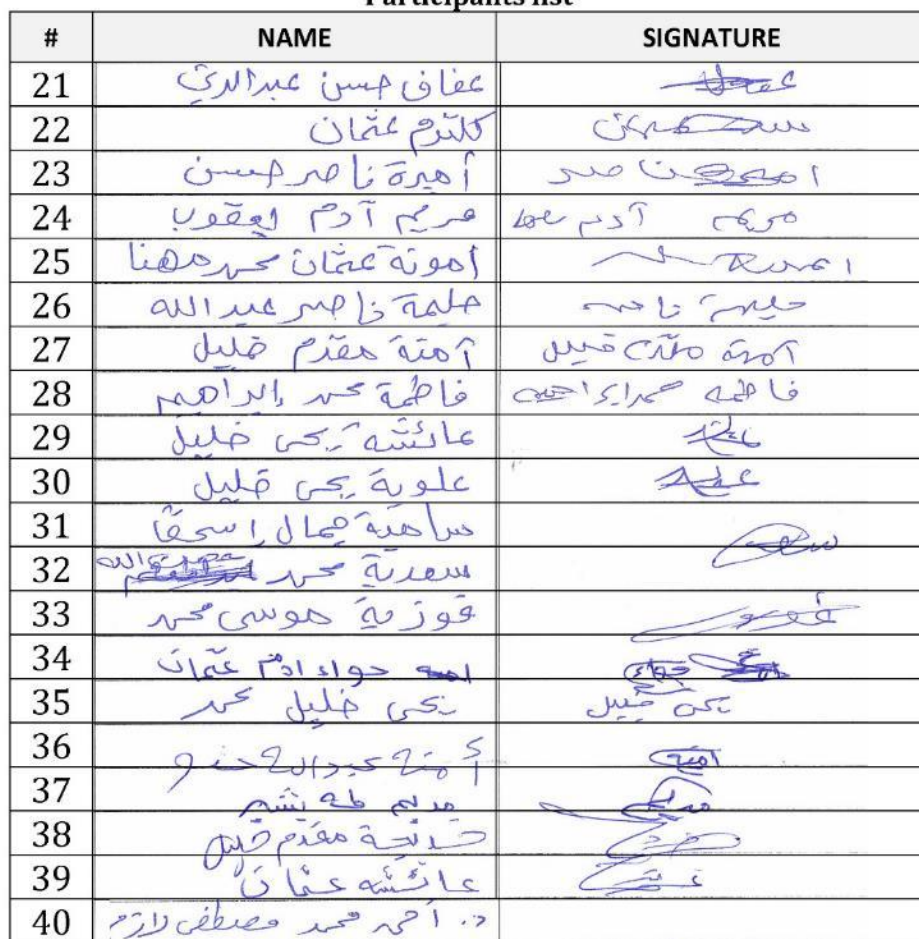 Participants list
# NAME SIGNATURE
21 عفاف حسن عبدالدين
22 كلتوم عثمان
23 أميرة ناصر حسن امير ناصر
24 مريم آدم يعقوب مريم آدم
25 امونة عثمان محمد مهنا
26 حليمة ناصر عبدالله حليمة ناصر
27 آمنة مقدم خليل آمنة مقدم خليل
28 فاطمة محمد إبراهيم فاطمه محمد إبراهيم
29 عائشه يحى خليل
30 علوية يحى خليل
31 سامية جمال إسحق
32 سعدية محمد
33 فوزية موسى محمد
34 حواء ادم عثمان حواء
35 يحى خليل محمد يحى خليل
36 أمنه عبدالله امنه
37 مريم طه بشير مريم
38 خديجة مقدم خليل
39 عائشه عثمان
40 د. أحمد محمد مصطفى